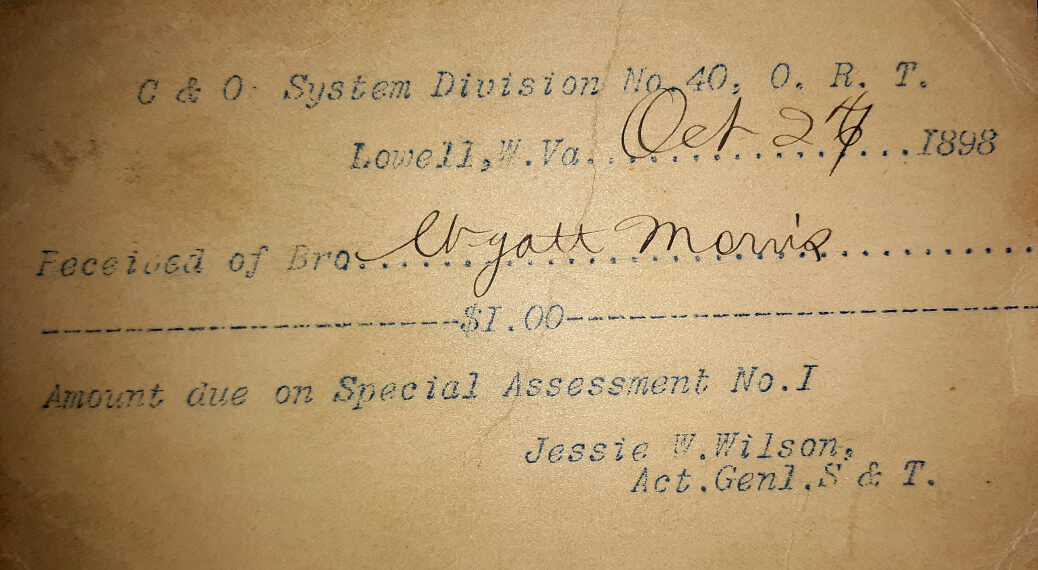 C & O System Division No. 40, O. R. T.
Lowell, W. Va. Oct 1898
Received of Bro. Wyatt Morris
$I.00
Amount due on Special Assessment No. I
Jessie W. Wilson,
Act. Genl. S & T.